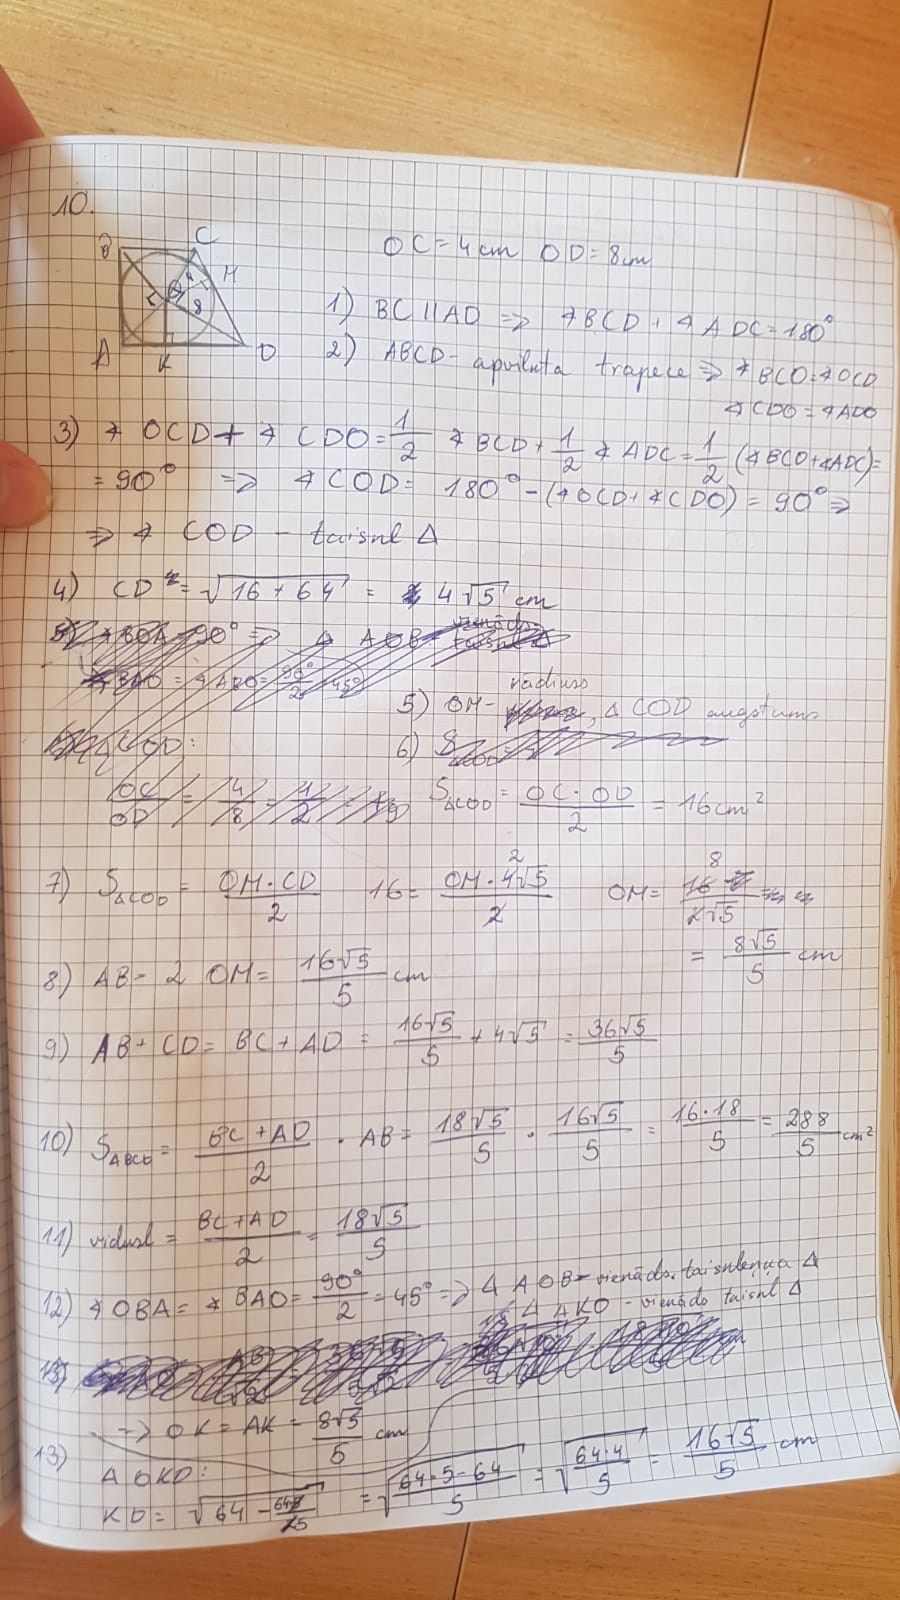 10.
B C M A K D 4 8
OC = 4 cm OD = 8 cm
1) BC || AD => ∢BCD + ∢ADC = 180°
2) ABCD - apvilkta trapece => ∢BCO = ∢OCD
∢CDO = ∢ADO
3) ∢OCD + ∢CDO = 1/2 ∢BCD + 1/2 ∢ADC = 1/2 (∢BCD + ∢ADC) =
= 90° => ∢COD = 180° - (∢OCD + ∢CDO) = 90° =>
=> ∢COD - taisnl Δ
4) CD = √(16 + 64) = 4√5 cm
5) OM - radiuss, Δ COD augstums
6) S ΔCOD = OC · OD / 2 = 16 cm²
7) S ΔCOD = OM · CD / 2 16 = OM · 4√5 / 2 OM = 16 / 2√5
= 8√5 / 5 cm
8) AB = 2 OM = 16√5 / 5 cm
9) AB + CD = BC + AD = 16√5 / 5 + 4√5 = 36√5 / 5
10) S ABCD = BC + AD / 2 · AB = 18√5 / 5 · 16√5 / 5 = 16·18 / 5 = 288 / 5 cm²
11) vidusl = BC + AD / 2 = 18√5 / 5
12) ∢OBA = ∢BAO = 90° / 2 = 45° => Δ AOB - vienāds. taisnleņķa Δ
Δ AKO - vienāds taisnl Δ
=> OK = AK = 8√5 / 5 cm
13) Δ OKD:
KD = √(64 - 64·5 / 25) = √(64·5 - 64 / 5) = √(64·4 / 5) = 16√5 / 5 cm